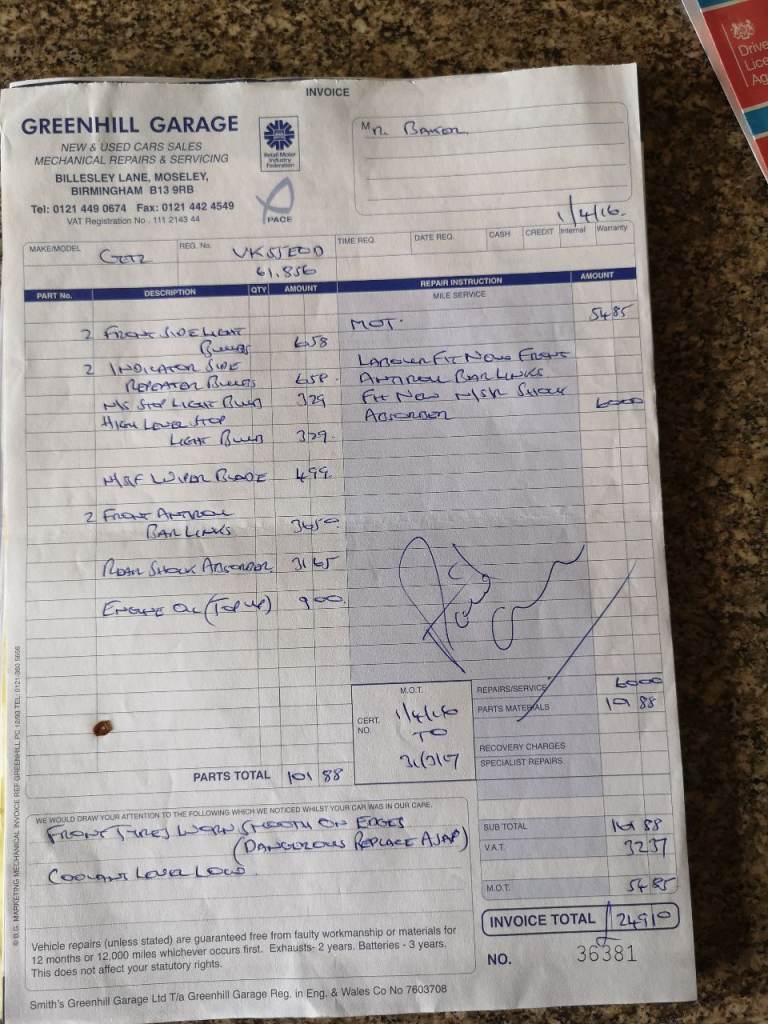 INVOICE
GREENHILL GARAGE
NEW & USED CARS SALES
MECHANICAL REPAIRS & SERVICING
BILLESLEY LANE, MOSELEY,
BIRMINGHAM B13 9RB
Tel: 0121 449 0674 Fax: 0121 442 4549
VAT Registration No . 111 2143 44
Retail Motor
Industry
Federation
PACE
Mr. Baker
Drive
Lice
Ag
1/4/16.
MAKE/MODEL Getz REG. No. VK55EOD TIME REQ. DATE REQ. CASH CREDIT Internal Warranty
61,856
PART No. DESCRIPTION QTY AMOUNT REPAIR INSTRUCTION AMOUNT
MILE SERVICE
MOT. 5485
2 FRONT SIDELIGHT
BULBS 658
2 INDICATOR SIDE
REPEATER BULBS 658
N/S STOP LIGHT BULB 329
HIGH LEVEL STOP
LIGHT BULB 329
LABOUR FIT NEW FRONT
ANTIROLL BAR LINKS
FIT NEW N/S/R SHOCK
ABSORBER 6000
N/S/F WIPER BLADE 499
2 FRONT ANTIROLL
BAR LINKS 3650
REAR SHOCK ABSORBER 3165
ENGINE OIL (TOP UP) 900
M.O.T.
CERT. NO.
1/4/16
TO
31/3/17
REPAIRS/SERVICE 6000
PARTS MATERIALS 101 88
RECOVERY CHARGES
SPECIALIST REPAIRS
PARTS TOTAL 101 88
WE WOULD DRAW YOUR ATTENTION TO THE FOLLOWING WHICH WE NOTICED WHILST YOUR CAR WAS IN OUR CARE.
FRONT TYRES WORN SMOOTH ON EDGES
(DANGEROUS REPLACE ASAP)
COOLANT LEVEL LOW.
SUB TOTAL 161 88
V.A.T. 3237
M.O.T. 5485
INVOICE TOTAL 24910
NO. 36381
Vehicle repairs (unless stated) are guaranteed free from faulty workmanship or materials for
12 months or 12,000 miles whichever occurs first. Exhausts- 2 years. Batteries - 3 years.
This does not affect your statutory rights.
Smith's Greenhill Garage Ltd T/a Greenhill Garage Reg. in Eng. & Wales Co No 7603708